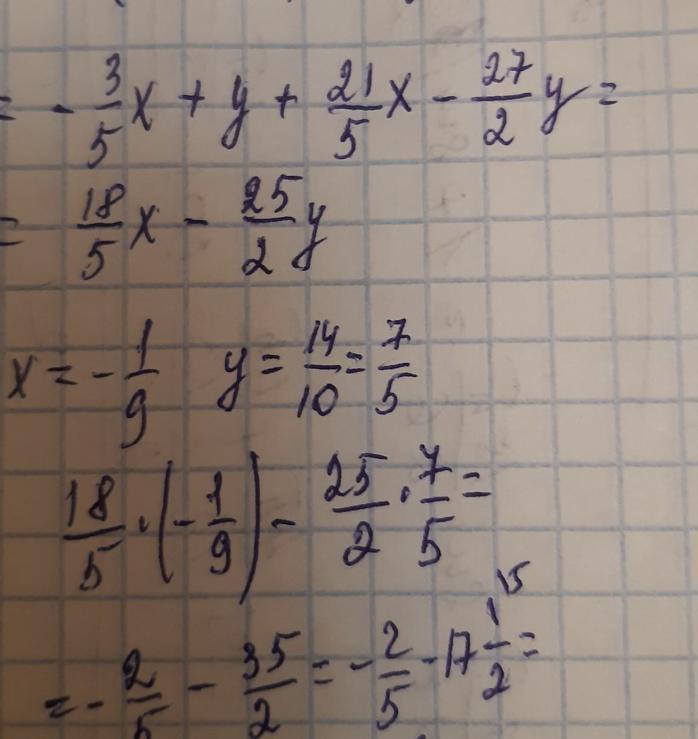 = - 3/5 x + y + 21/5 x - 27/2 y =
= 18/5 x - 25/2 y
x = - 1/9 y = 14/10 = 7/5
18/5 · (- 1/9) - 25/2 · 7/5 =
= - 2/5 - 35/2 = - 2/5 - 17 1/2 ^15 =